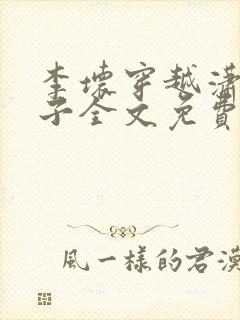 李壞穿越瀟
子全文免費
風一樣的君漠